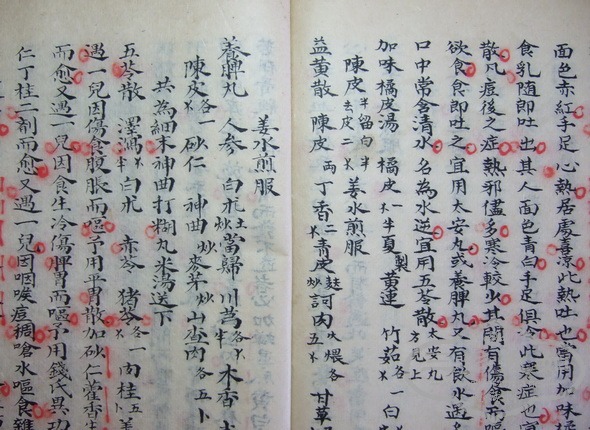 面色赤紅手足心熱居處喜涼此熱吐也當用加味橘
食乳隨即吐出其人面色青白手足俱冷此寒症也宜
散凡痘後之症熱邪儘多寒冷較少其間有傷食而嘔
欲食食即吐之宜用太安丸或養脾丸又有飲水過多
口中常含清水名為水逆宜用五苓散太安丸方見上
加味橘皮湯 橘皮一 半夏製 黃連 竹茹各一 白
陳皮去皮 半留白半 姜水煎服
益黃散 陳皮兩 丁香二 青皮炒 訶肉火煨各五 甘草
姜水煎服
養脾丸 人參 白朮土 當歸 川芎各半 木香
陳皮各一 砂仁 神曲炒 麥芽炒 山查肉各五卜
共為細末神曲打糊丸米湯送下
五苓散 澤瀉半 白朮 赤苓 豬苓各一 肉桂五
遇一兒因傷食腹脹而嘔予用平胃散加砂仁藿香生
而愈又遇一兒因食生冷傷脾胃而嘔予用錢氏異功
仁丁桂二劑而愈又遇一兒因咽喉痘稠嗆水嘔食雜